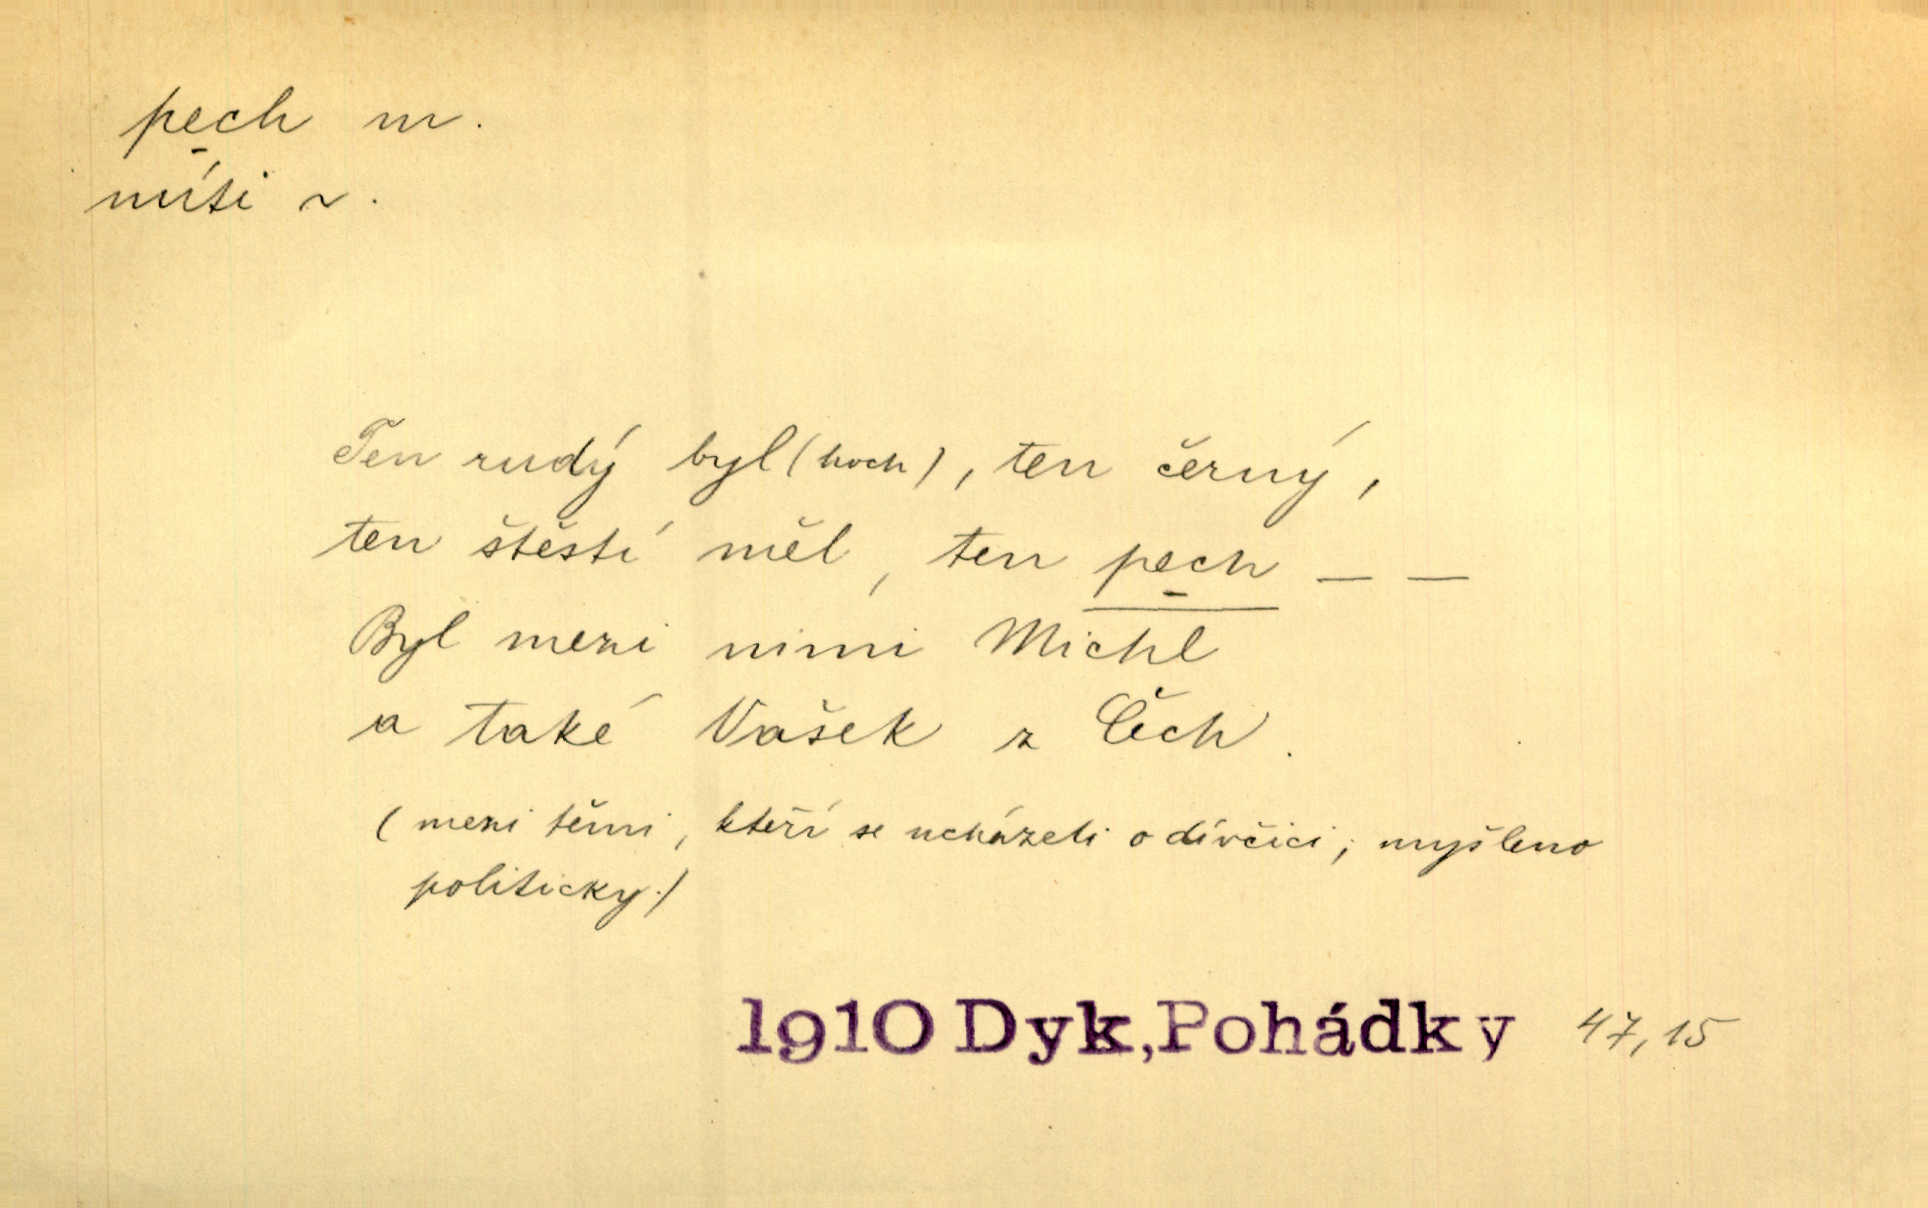 pech m.
míti ~.
Ten rudý byl (hoch), ten černý,
ten štěstí měl, ten pech — —
Byl mezi nimi Michl
a také Vašek z Čech.
(mezi těmi, kteří se ucházeli o dívčici; myšleno
politicky.)
1910 Dyk, Pohádky 47,15